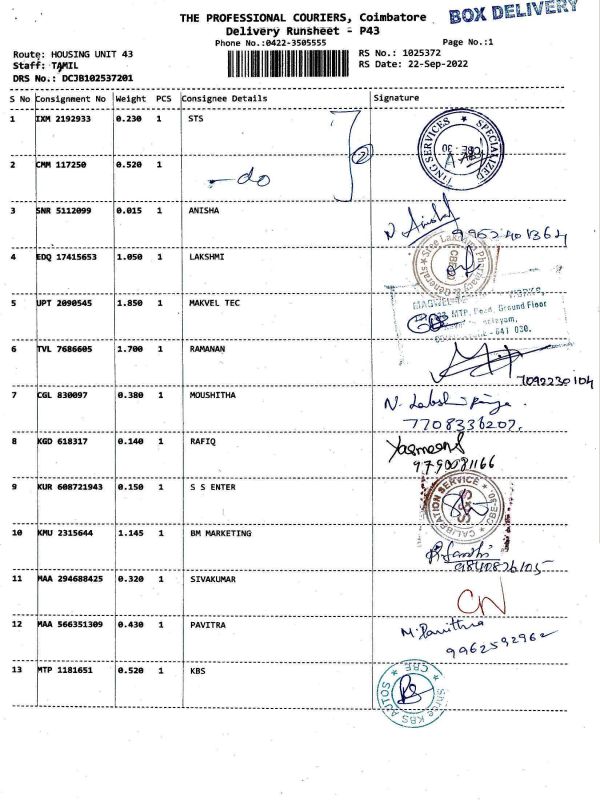 THE PROFESSIONAL COURIERS, Coimbatore
BOX DELIVERY
Delivery Runsheet - P43
Phone No.:0422-3505555
Page No.:1
Route: HOUSING UNIT 43
RS No.: 1025372
Staff: TAMIL
RS Date: 22-Sep-2022
DRS No.: DCJB102537201
S No Consignment No Weight PCS Consignee Details Signature
1 IXM 2192933 0.230 1 STS
SPECIALIZED
TING SERVICES
CBE - 30
2 CMM 117250 0.520 1 -do
2
3 SNR 5112099 0.015 1 ANISHA
N. Anisha
9952401364
4 EDQ 17415653 1.050 1 LAKSHMI
Sree Lakshmi Pharmacy & Generals
5 UPT 2090545 1.850 1 MAKVEL TEC
MTP. Road, Ground Floor
- 641 030.
6 TVL 7686605 1.700 1 RAMANAN
7092230104
7 CGL 830097 0.380 1 MOUSHITHA
N. Lakshmi Priya
7708336207.
8 KGD 618317 0.140 1 RAFIQ
Yasmeen
9790081166
9 KUR 608721943 0.150 1 S S ENTER
CALIBRATION SERVICE
CBE-30
10 KMU 2315644 1.145 1 BM MARKETING
9840826105
11 MAA 294688425 0.320 1 SIVAKUMAR
CN
12 MAA 566351309 0.430 1 PAVITRA
M. Pavithra
9962592962
13 MTP 1181651 0.520 1 KBS
Shree KBS AUTOS
CBE